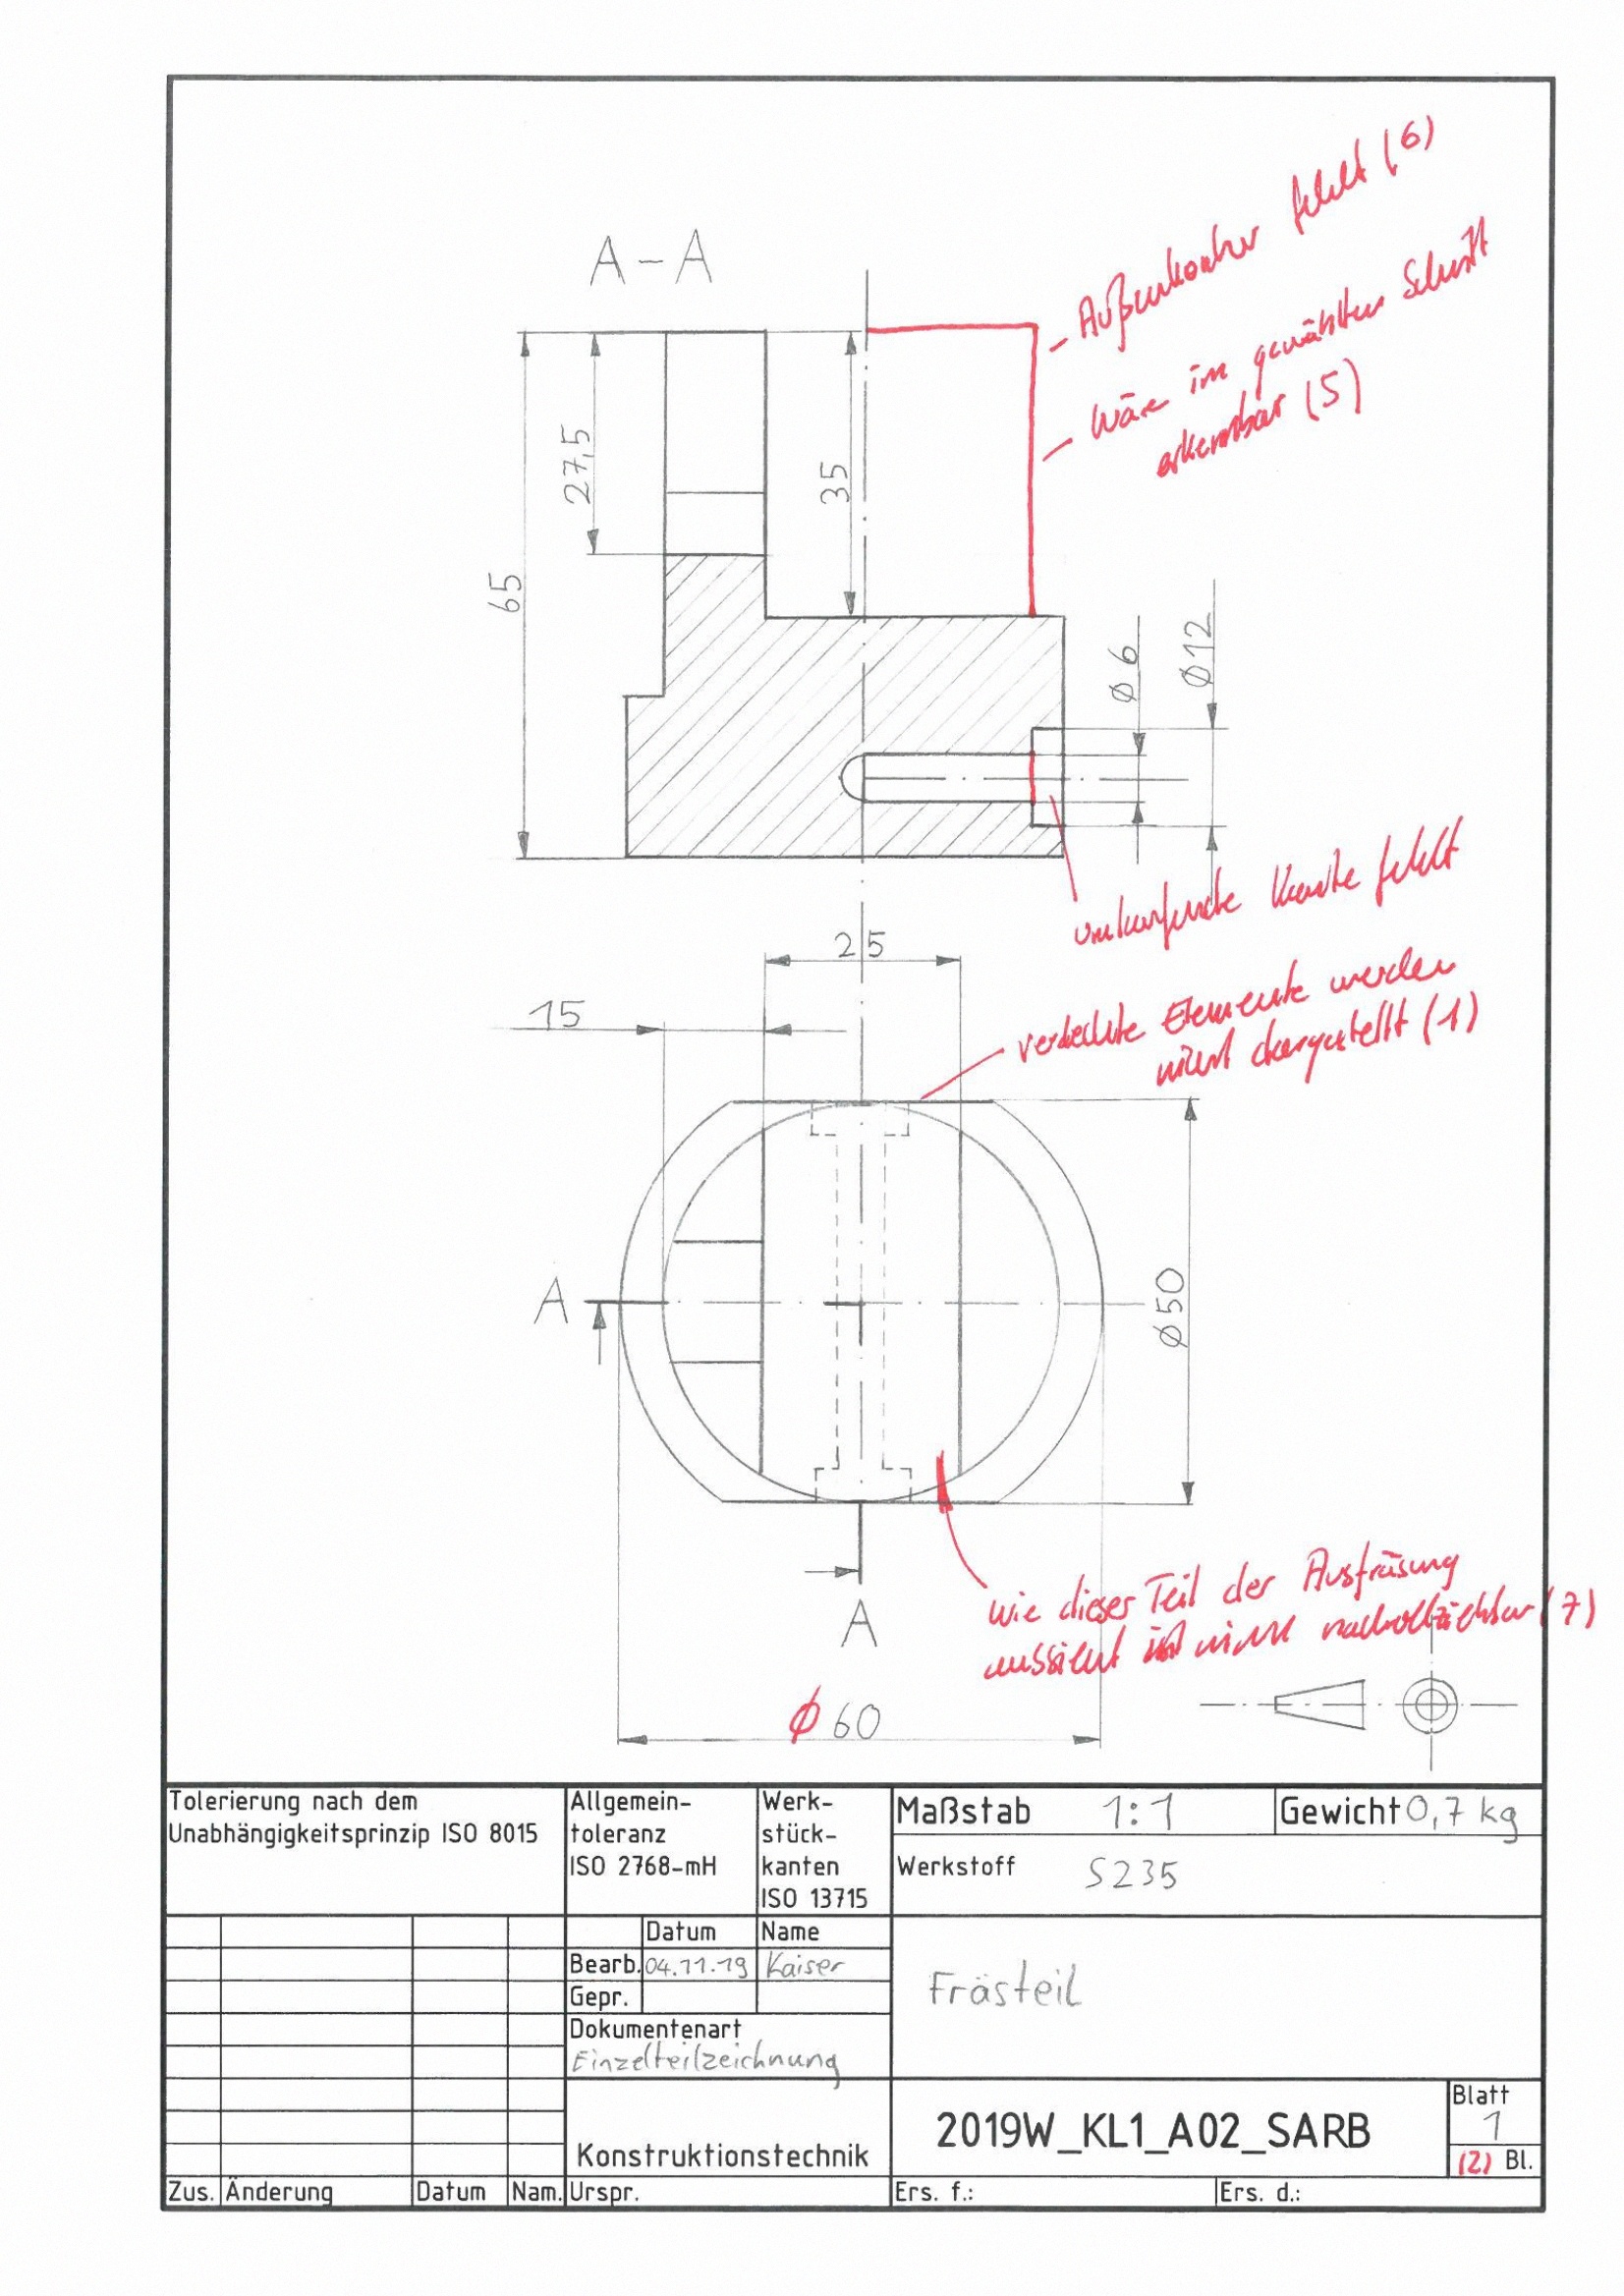 Außenkontur fehlt (6)
A-A
Wäre im gewählten Schnitt
erkennbar (5)
27,5
35
65
Ø 6
Ø12
umlaufende Kante fehlt
25
verdeckte Elemente werden
nicht dargestellt (1)
15
A
Ø50
wie dieser Teil der Ausfräsung
aussieht ist nicht nachvollziehbar (7)
A
Ø 60
Tolerierung nach dem
Unabhängigkeitsprinzip ISO 8015
Allgemein-
toleranz
ISO 2768-mH
Werk-
stück-
kanten
ISO 13715
Maßstab 1:1
Gewicht 0,7 kg
Werkstoff S235
Datum Name
Bearb. 04.11.19 Kaiser
Gepr.
Frästeil
Dokumentenart
Einzelteilzeichnung
Konstruktionstechnik
2019W_KL1_A02_SARB
Blatt
1
(2) Bl.
Zus. Änderung Datum Nam. Urspr. Ers. f.: Ers. d.: